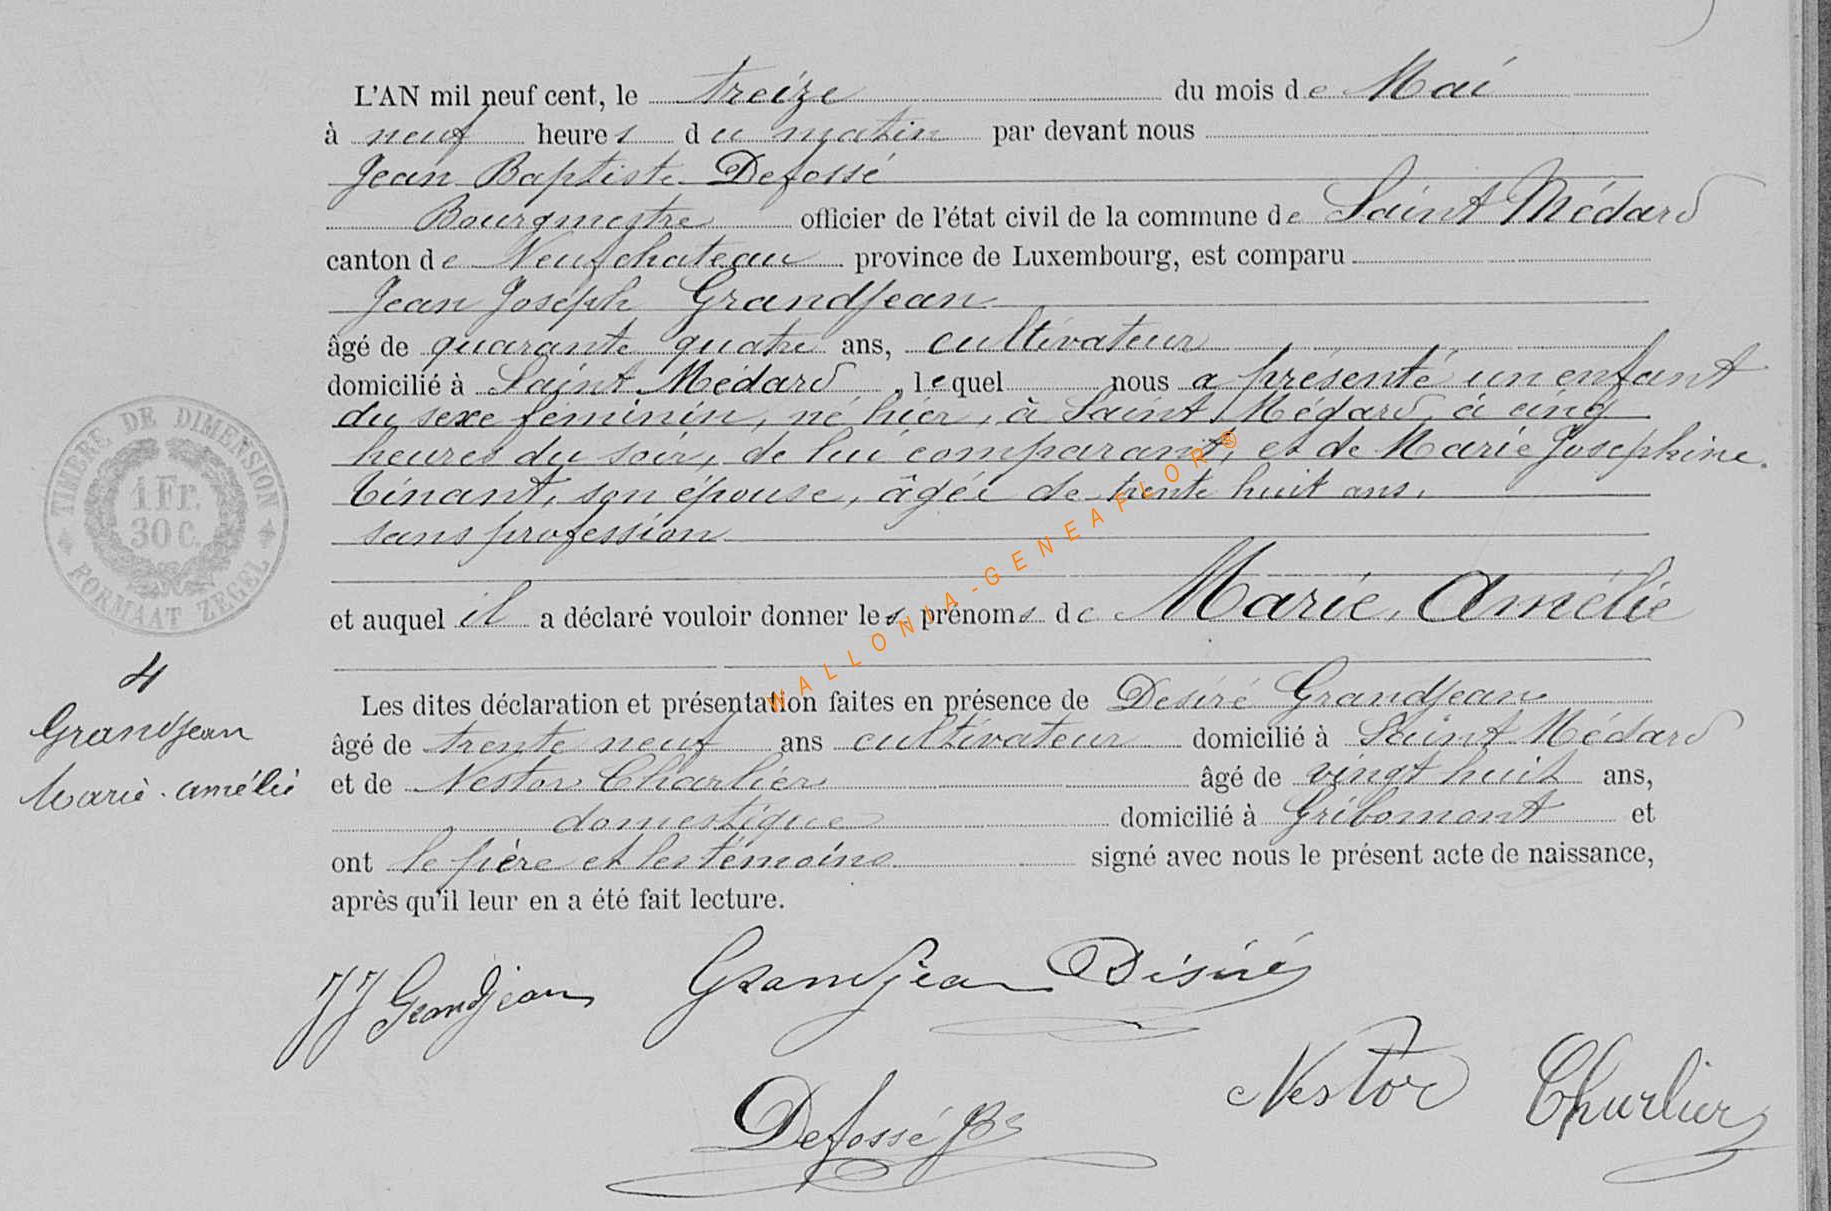 L'AN mil neuf cent, le treize du mois de Mai
à neuf heures du matin par devant nous
Jean Baptiste Defossé
Bourgmestre officier de l'état civil de la commune de Saint Médard
canton de Neufchateau province de Luxembourg, est comparu
Jean Joseph Grandjean
âgé de quarante quatre ans, cultivateur
domicilié à Saint Médard, lequel nous a présenté un enfant
du sexe féminin, né hier, à Saint Médard, à cinq
heures du soir, de lui comparant, et de Marie Josephine
Tinant, son épouse, âgée de trente huit ans,
sans profession
et auquel il a déclaré vouloir donner les prénoms de Marie, Amélie
Les dites déclaration et présentation faites en présence de Desiré Grandjean
âgé de trente neuf ans cultivateur domicilié à Saint Médard
et de Nestor Charlier âgé de vingt huit ans,
domestique domicilié à Gribomont et
ont le père et les témoins signé avec nous le présent acte de naissance,
après qu'il leur en a été fait lecture.
TIMBRE DE DIMENSION
1 Fr.
30 C.
FORMAAT ZEGEL
4
Grandjean
Marie-Amélie
WALLONIA-GENEAFLOR®
JJ Grandjean Grandjean Désiré
Nestor Charlier
Defossé JBs